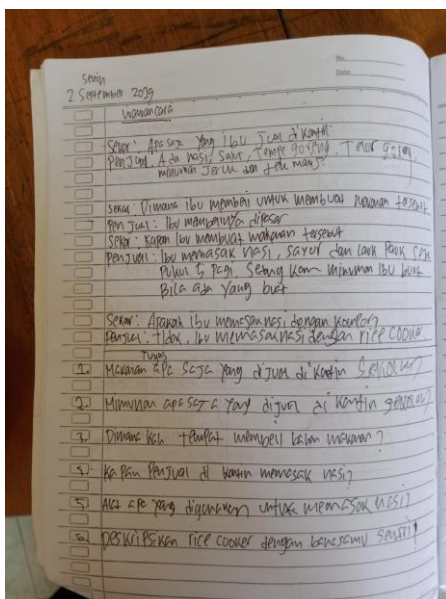 No.
Date
Senin
2 September 2029
Wawancara
Sekar: Apa Saja Yang Ibu Jual di Kantin
Penjual: Ada nasi, Sayur, Tempe goreng, Telor goreng,
minuman Jeruk dan teh manis.
Sekar: Dimana Ibu membeli untuk membuat makanan tersebut
Penjual: Ibu membelinya dipasar
Sekar: Kapan Ibu membuat makanan tersebut
Penjual: Ibu memasak nasi, sayur dan Lauk Pauk
Pukul 5 Pagi, minuman Ibu buat
Bila ada Yang
Sekar: Apakah Ibu memasak nasi dengan kompor
Penjual: tidak, Ibu memasak nasi dengan rice cooker
Tugas
1. Makanan apa Saja Yang dijual di kantin Sekolah?
2. Minuman apa saja Yang dijual di kantin sekolah?
3. Dimana Kah tempat membeli bahan makanan?
4. Kapan Penjual di kantin memasak nasi?
5. Alat apa yang digunakan untuk memasak nasi?
6. Deskripsikan rice cooker dengan